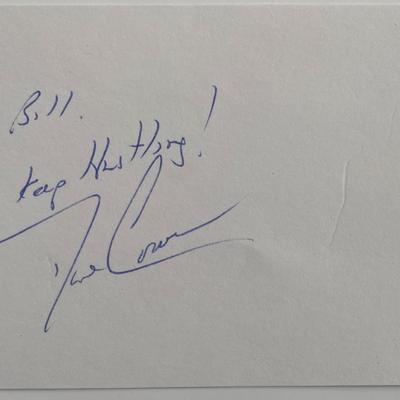 Bill.
Keep Hustling!
Dave Cowens